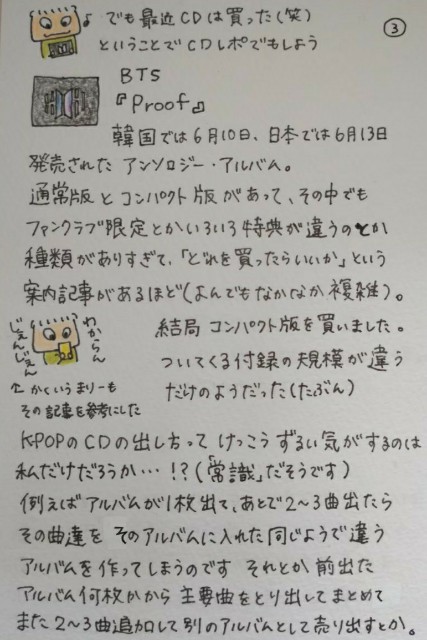 ♪ でも最近CDは買った(笑)
③
ということでCDレポでもしよう
BTS
『Proof』
韓国では6月10日、日本では6月13日
発売されたアンソロジー・アルバム。
通常版とコンパクト版があって、その中でも
ファンクラブ限定とかいろいろ特典が違うのとか
種類がありすぎて、「どれを買ったらいいか」という
案内記事があるほど(よんでもなかなか複雑)。
じぇんじぇん
わからん
結局コンパクト版を買いました。
ついてくる付録の規模が違う
だけのようだった(たぶん)
↑かくいうまりーも
その記事を参考にした
KPOPのCDの出し方って けっこうずるい気がするのは
私だけだろうか…!?(「常識」だそうです)
例えばアルバムが1枚出て、あとで2〜3曲出たら
その曲達をそのアルバムに入れた同じようで違う
アルバムを作ってしまうのです それとか前出た
アルバム何枚かから主要曲をとり出してまとめて
また2〜3曲追加して別のアルバムとして売り出すとか。